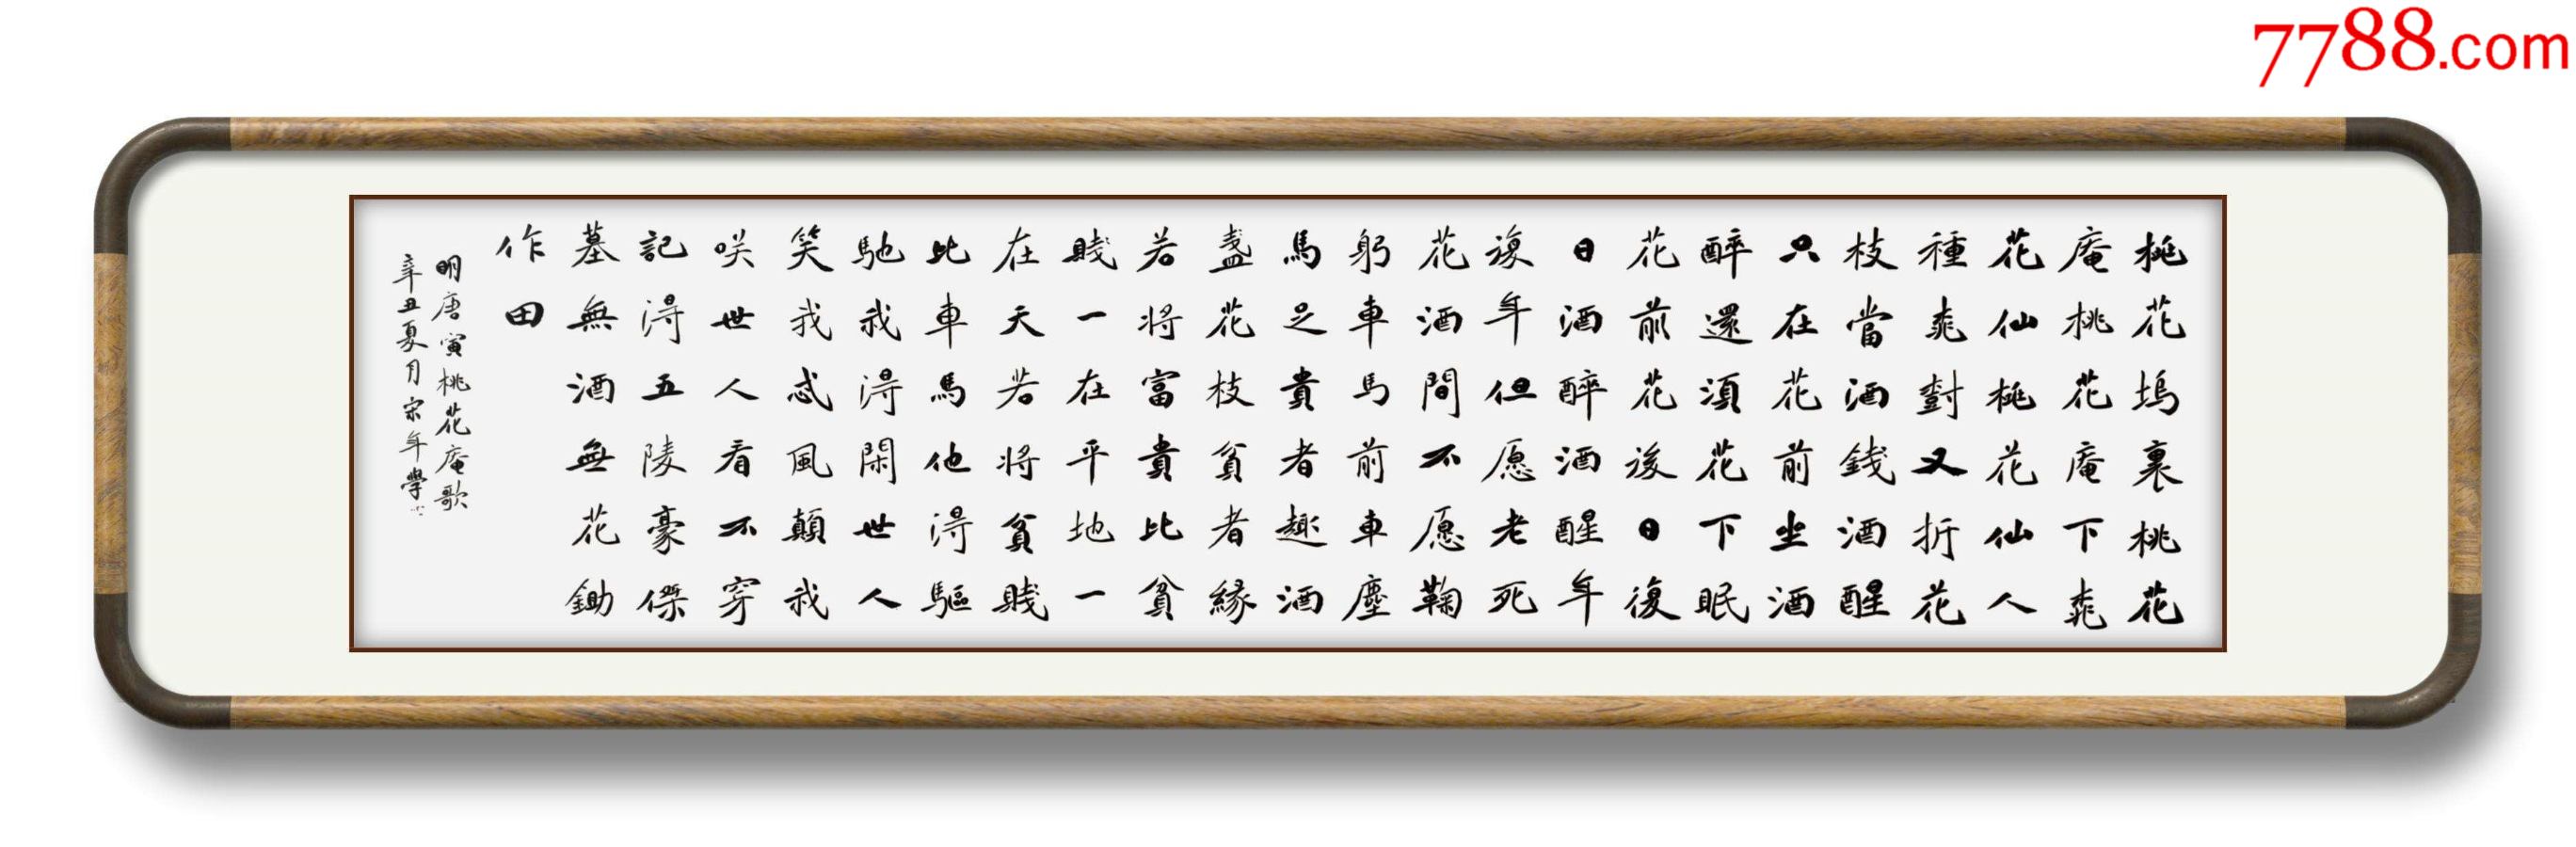 桃花塢裏桃花
庵桃花庵下桃
花仙桃花仙人
種桃對又折花
枝當酒錢酒醒
只在花前坐酒
醉還須花下眠
花前花後日復
日酒醉酒醒年
復年但愿老死
花酒間不愿鞠
躬車馬前車塵
馬足貴者趣酒
盞花枝貧者緣
若将富貴比貧
賤一在平地一
在天若将貧賤
比車馬他得驅
馳我得閑世人
笑我忒風顛我
咲世人看不穿
記得五陵豪傑
墓無酒無花鋤
作田
明唐寅桃花庵歌
辛丑夏月宋年學
7788.com